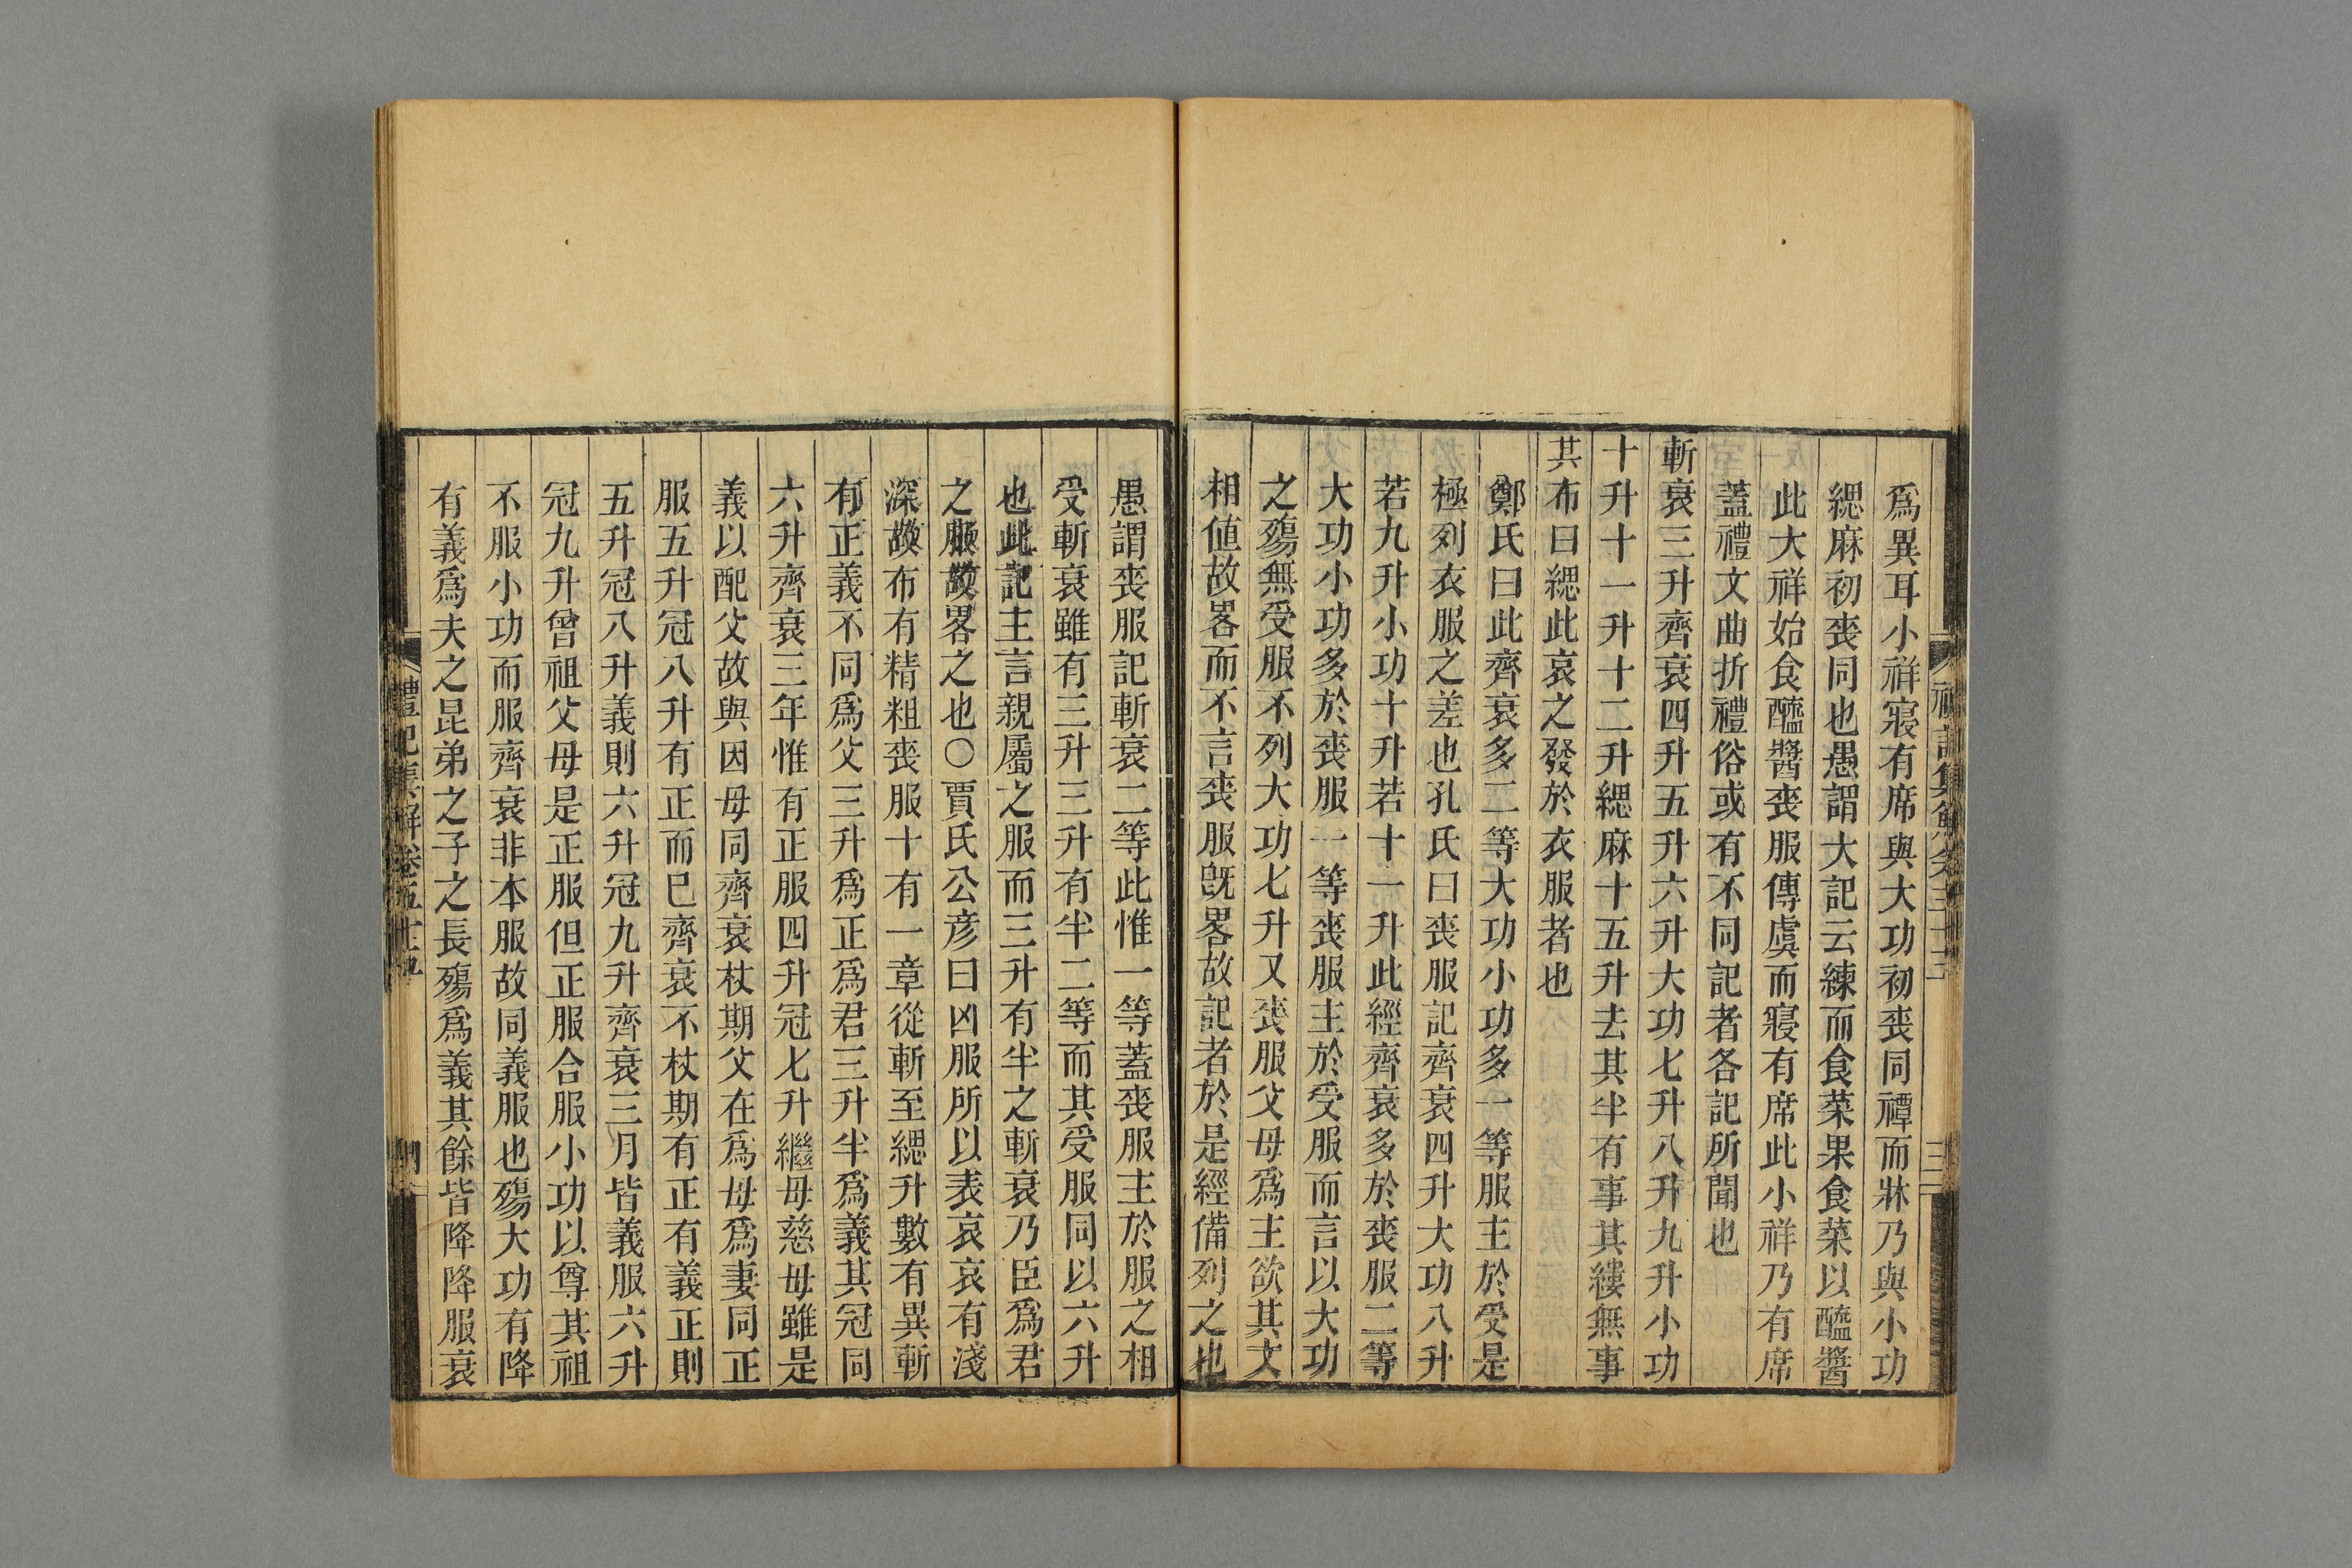 爲異耳小祥寢有席與大功初喪同禫而牀乃與小功
緦麻初喪同也愚謂大記云練而食菜果食菜以醯醬
此大祥始食醯醬喪服傳虞而寢有席此小祥乃有席
蓋禮文曲折禮俗或有不同記者各記所聞也
斬衰三升齊衰四升五升六升大功七升八升九升小功
十升十一升十二升緦麻十五升去其半有事其縷無事
其布曰緦此哀之發於衣服者也
鄭氏曰此齊衰多二等大功小功多一等服主於受是
極列衣服之差也孔氏曰喪服記齊衰四升大功八升
若九升小功十升若十一升此經齊衰多於喪服二等
大功小功多於喪服一等喪服主於受服而言以大功
之殤無受服不列大功七升又喪服父母爲主欲其文
相値故畧而不言喪服旣畧故記者於是經備列之也
愚謂喪服記斬衰二等此惟一等蓋喪服主於服之相
受斬衰雖有三升三升有半二等而其受服同以六升
也此記主言親屬之服而三升有半之斬衰乃臣爲君
之服故畧之也○賈氏公彦曰凶服所以表哀哀有淺
深故布有精粗喪服十有一章從斬至緦升數有異斬
有正義不同爲父三升爲正爲君三升半爲義其冠同
六升齊衰三年惟有正服四升冠七升繼母慈母雖是
義以配父故與因母同齊衰杖期父在爲母爲妻同正
服五升冠八升有正而已齊衰不杖期有正有義正則
五升冠八升義則六升冠九升齊衰三月皆義服六升
冠九升曾祖父母是正服但正服合服小功以尊其祖
不服小功而服齊衰非本服故同義服也殤大功有降
有義爲夫之昆弟之子之長殤爲義其餘皆降降服衰
禮記集解卷五十四